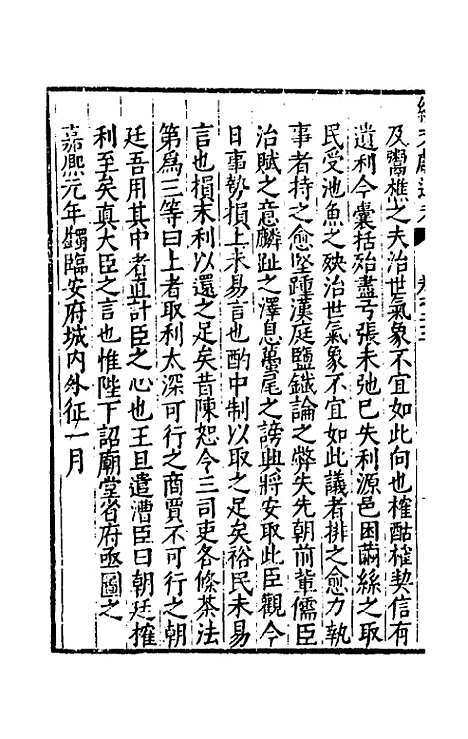 及鬻樵之夫治世氣象不宜如此向也榷酤榷契信有
遺利今囊括殆盡弓張未弛已失利源邑困繭絲之取
民受池魚之殃治世氣象不宜如此議者排之愈力執
事者持之愈堅踵漢庭鹽鐵論之弊失先朝前輩儒臣
治賦之意麟趾之澤息蠆尾之謗興將安取此臣觀今
日事勢損上未易言也酌中制以取之足矣裕民未易
言也損末利以還之足矣昔陳恕令三司吏各條茶法
第爲三等曰上者取利太深可行之商賈不可行之朝
廷吾用其中者眞計臣之心也王旦遣漕臣曰朝廷榷
利至矣眞大臣之言也惟陛下詔廟堂省府亟圖之
嘉熙元年蠲臨安府城内外征一月